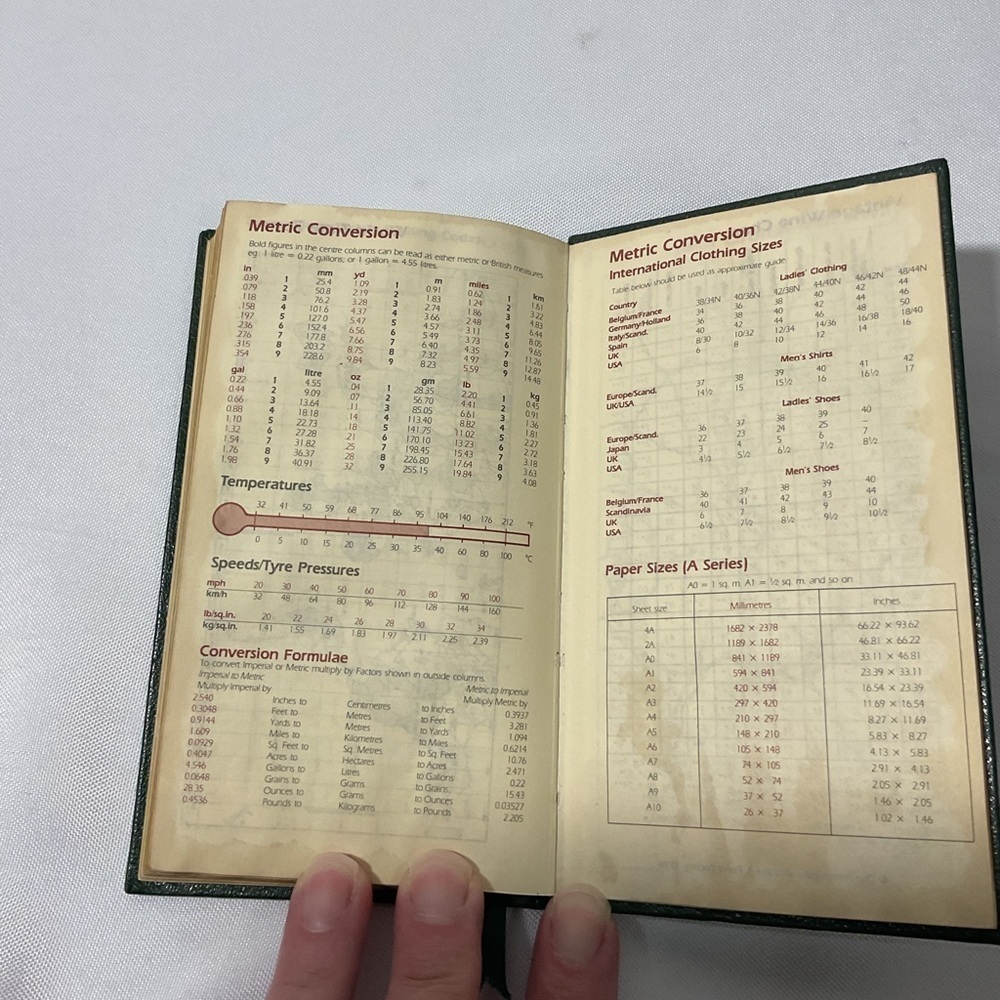 Metric Conversion
Bold figures in the centre columns can be read as either metric or British measures
eg 1 litre = 0.22 gallons, or 1 gallon = 4.55 litres.
in mm yd m miles km
.039 1 25.4 1.09 1 0.91 0.62 1 1.61
.079 2 50.8 2.19 2 1.83 1.24 2 3.22
.118 3 76.2 3.28 3 2.74 1.86 3 4.83
.158 4 101.6 4.37 4 3.66 2.48 4 6.44
.197 5 127.0 5.47 5 4.57 3.11 5 8.05
.236 6 152.4 6.56 6 5.49 3.73 6 9.65
.276 7 177.8 7.66 7 6.40 4.35 7 11.26
.315 8 203.2 8.75 8 7.32 4.97 8 12.87
.354 9 228.6 9.84 9 8.23 5.59 9 14.48
gal litre oz gm lb kg
0.22 1 4.55 .04 1 28.35 2.20 1 0.45
0.44 2 9.09 .07 2 56.70 4.41 2 0.91
0.66 3 13.64 .11 3 85.05 6.61 3 1.36
0.88 4 18.18 .14 4 113.40 8.82 4 1.81
1.10 5 22.73 .18 5 141.75 11.02 5 2.27
1.32 6 27.28 .21 6 170.10 13.23 6 2.72
1.54 7 31.82 .25 7 198.45 15.43 7 3.18
1.76 8 36.37 .28 8 226.80 17.64 8 3.63
1.98 9 40.91 .32 9 255.15 19.84 9 4.08
Temperatures
32 41 50 59 68 77 86 95 104 140 176 212 °F
0 5 10 15 20 25 30 35 40 60 80 100 °C
Speeds/Tyre Pressures
mph 20 30 40 50 60 70 80 90 100
km/h 32 48 64 80 96 112 128 144 160
lb/sq.in. 20 22 24 26 28 30 32 34
kg/sq.in. 1.41 1.55 1.69 1.83 1.97 2.11 2.25 2.39
Conversion Formulae
To convert Imperial or Metric multiply by Factors shown in outside columns.
Imperial to Metric Metric to Imperial
Multiply Imperial by Multiply Metric by
2.540 Inches to Centimetres to Inches 0.3937
0.3048 Feet to Metres to Feet 3.281
0.9144 Yards to Metres to Yards 1.094
1.609 Miles to Kilometres to Miles 0.6214
0.0929 Sq. Feet to Sq. Metres to Sq. Feet 10.76
0.4047 Acres to Hectares to Acres 2.471
4.546 Gallons to Litres to Gallons 0.22
0.0648 Grains to Grams to Grains 15.43
28.35 Ounces to Grams to Ounces 0.03527
0.4536 Pounds to Kilograms to Pounds 2.205
Metric Conversion
International Clothing Sizes
Table below should be used as approximate guide
Ladies' Clothing
Country 38/34N 40/36N 42/38N 44/40N 46/42N 48/44N
Belgium/France 34 36 38 40 42 44
Germany/Holland 36 38 40 42 44 46
Italy/Scand. 40 42 44 46 48 50
Spain 8/30 10/32 12/34 14/36 16/38 18/40
UK 6 8 10 12 14 16
USA
Men's Shirts
Europe/Scand. 37 38 39 40 41 42
UK/USA 14½ 15 15½ 16 16½ 17
Ladies' Shoes
Europe/Scand. 36 37 38 39 40
Japan 22 23 24 25 –
UK 3 4 5 6 7
USA 4½ 5½ 6½ 7½ 8½
Men's Shoes
Belgium/France 36 37 38 39 40
Scandinavia 40 41 42 43 44
UK 6 7 8 9 10
USA 6½ 7½ 8½ 9½ 10½
Paper Sizes (A Series)
A0 = 1 sq. m. A1 = ½ sq. m. and so on
Sheet size Millimetres Inches
4A 1682 × 2378 66.22 × 93.62
2A 1189 × 1682 46.81 × 66.22
A0 841 × 1189 33.11 × 46.81
A1 594 × 841 23.39 × 33.11
A2 420 × 594 16.54 × 23.39
A3 297 × 420 11.69 × 16.54
A4 210 × 297 8.27 × 11.69
A5 148 × 210 5.83 × 8.27
A6 105 × 148 4.13 × 5.83
A7 74 × 105 2.91 × 4.13
A8 52 × 74 2.05 × 2.91
A9 37 × 52 1.46 × 2.05
A10 26 × 37 1.02 × 1.46